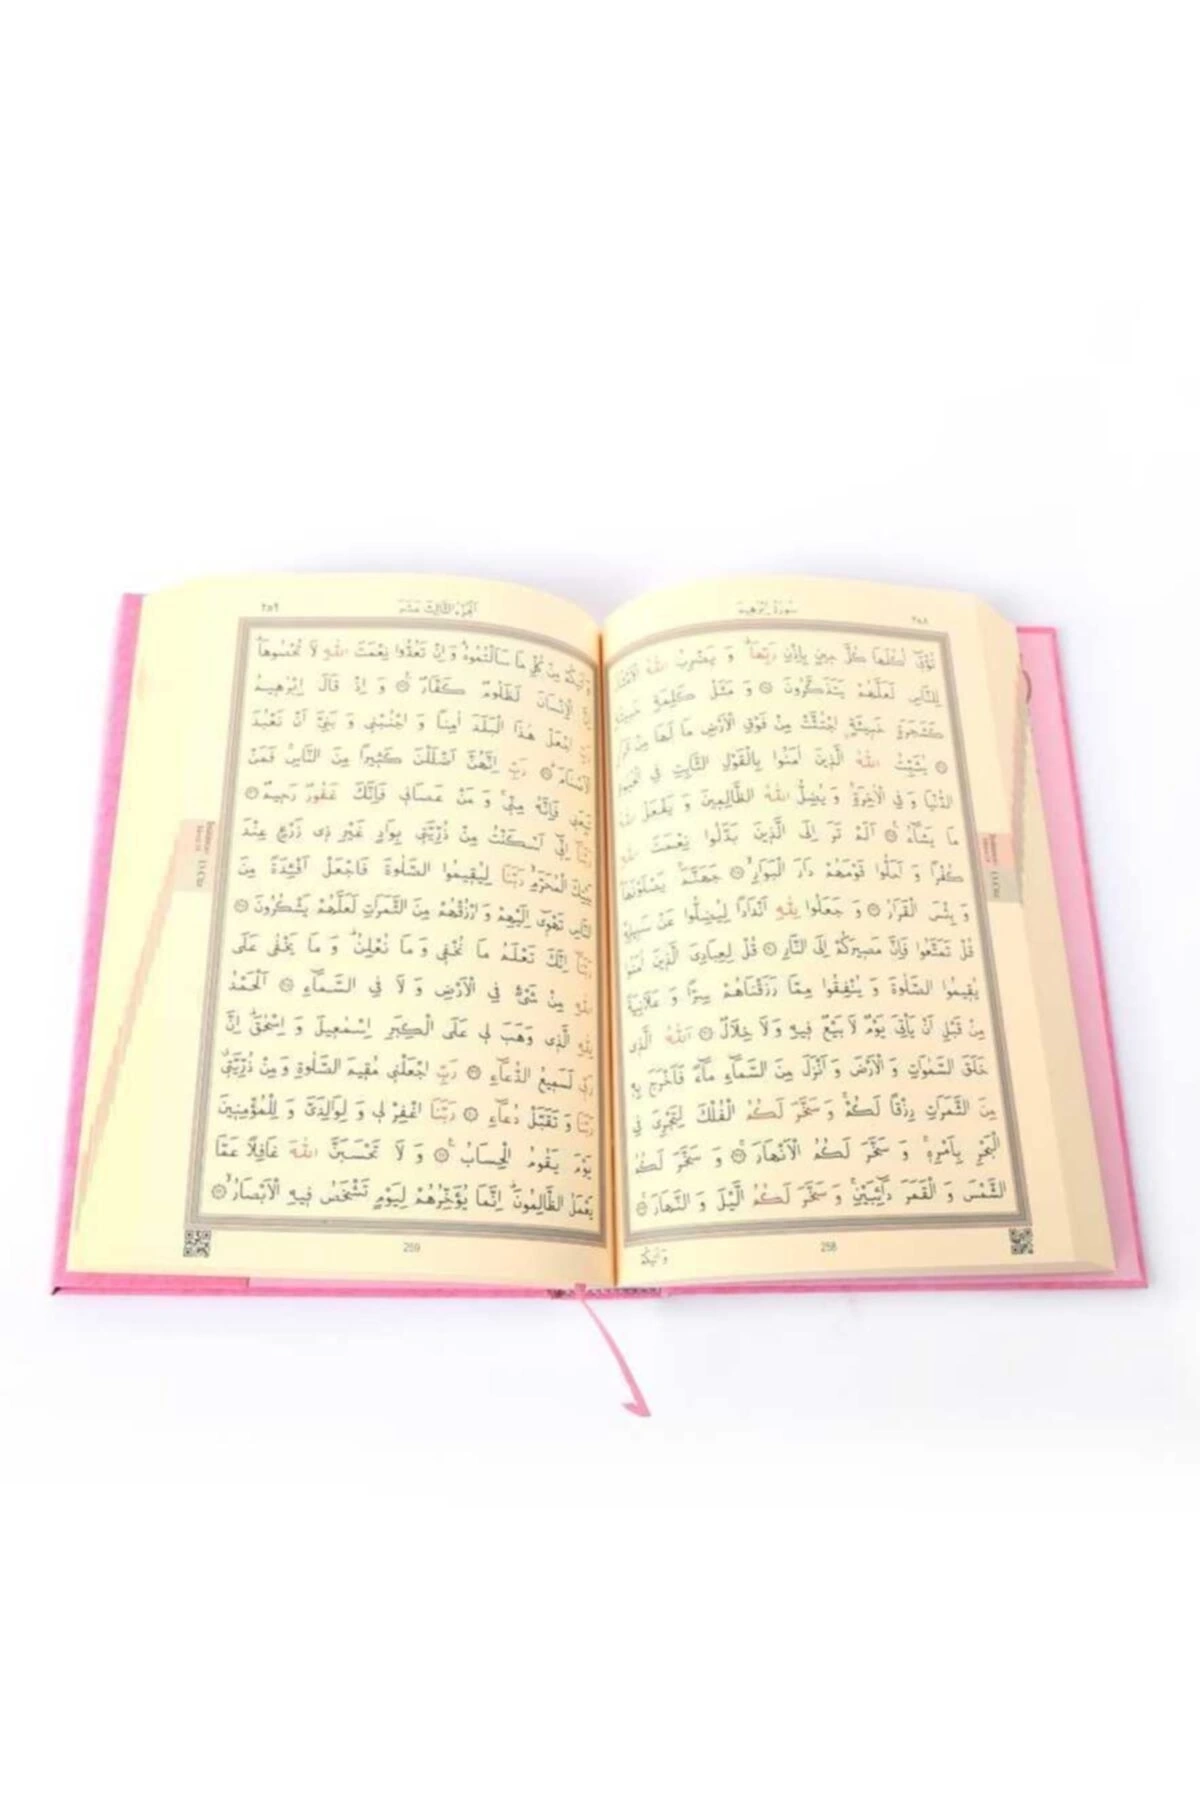 سُورَةُ اِبْرٰهِيمَ
٢٥٨
تُؤْتٖٓي اُكُلَهَا كُلَّ حٖينٍ بِاِذْنِ رَبِّهَاۜ وَ يَضْرِبُ اللّٰهُ الْاَمْثَالَ
لِلنَّاسِ لَعَلَّهُمْ يَتَذَكَّرُونَ ۝ وَ مَثَلُ كَلِمَةٍ خَبٖيثَةٍ
كَشَجَرَةٍ خَبٖيثَةٍۨ اجْتُثَّتْ مِنْ فَوْقِ الْاَرْضِ مَا لَهَا مِنْ قَرَارٍ
۝ يُثَبِّتُ اللّٰهُ الَّذٖينَ اٰمَنُوا بِالْقَوْلِ الثَّابِتِ فِي الْحَيٰوةِ
الدُّنْيَا وَ فِي الْاٰخِرَةِۚ وَ يُضِلُّ اللّٰهُ الظَّالِمٖينَ وَ يَفْعَلُ اللّٰهُ
مَا يَشَٓاءُ۟ ۝ اَلَمْ تَرَ اِلَى الَّذٖينَ بَدَّلُوا نِعْمَتَ اللّٰهِ
كُفْرًا وَ اَحَلُّوا قَوْمَهُمْ دَارَ الْبَوَارِۙ ۝ جَهَنَّمَۚ يَصْلَوْنَهَا
وَ بِئْسَ الْقَرَارُ ۝ وَ جَعَلُوا لِلّٰهِ اَنْدَادًا لِيُضِلُّوا عَنْ سَبٖيلِهٖ
قُلْ تَمَتَّعُوا فَاِنَّ مَصٖيرَكُمْ اِلَى النَّارِ ۝ قُلْ لِعِبَادِيَ الَّذٖينَ اٰمَنُوا
يُقٖيمُوا الصَّلٰوةَ وَ يُنْفِقُوا مِمَّا رَزَقْنَاهُمْ سِرًّا وَ عَلَانِيَةً
مِنْ قَبْلِ اَنْ يَأْتِيَ يَوْمٌ لَا بَيْعٌ فٖيهِ وَ لَا خِلَالٌ ۝ اَللّٰهُ الَّذٖي
خَلَقَ السَّمٰوَاتِ وَ الْاَرْضَ وَ اَنْزَلَ مِنَ السَّمَٓاءِ مَٓاءً فَاَخْرَجَ بِهٖ
مِنَ الثَّمَرَاتِ رِزْقًا لَكُمْۚ وَ سَخَّرَ لَكُمُ الْفُلْكَ لِتَجْرِيَ فِي
الْبَحْرِ بِاَمْرِهٖۚ وَ سَخَّرَ لَكُمُ الْاَنْهَارَۚ ۝ وَ سَخَّرَ لَكُمُ
الشَّمْسَ وَ الْقَمَرَ دَٓائِبَيْنِۚ وَ سَخَّرَ لَكُمُ الَّيْلَ وَ النَّهَارَۚ ۝
258
وَ اٰتٰيكُمْ
اَلْجُزْءُ الثَّالِثَ عَشَرَ
٢٥٩
وَ اٰتٰيكُمْ مِنْ كُلِّ مَا سَاَلْتُمُوهُۜ وَ اِنْ تَعُدُّوا نِعْمَتَ اللّٰهِ لَا تُحْصُوهَاۜ
اِنَّ الْاِنْسَانَ لَظَلُومٌ كَفَّارٌ۟ ۝ وَ اِذْ قَالَ اِبْرٰهٖيمُ
رَبِّ اجْعَلْ هٰذَا الْبَلَدَ اٰمِنًا وَ اجْنُبْنٖي وَ بَنِيَّ اَنْ نَعْبُدَ
الْاَصْنَامَۜ ۝ رَبِّ اِنَّهُنَّ اَضْلَلْنَ كَثٖيرًا مِنَ النَّاسِۚ فَمَنْ
تَبِعَنٖي فَاِنَّهُ مِنّٖيۚ وَ مَنْ عَصَانٖي فَاِنَّكَ غَفُورٌ رَحٖيمٌ ۝
رَبَّنَٓا اِنّٖٓي اَسْكَنْتُ مِنْ ذُرِّيَّتٖي بِوَادٍ غَيْرِ ذٖي زَرْعٍ عِنْدَ
بَيْتِكَ الْمُحَرَّمِۙ رَبَّنَا لِيُقٖيمُوا الصَّلٰوةَ فَاجْعَلْ اَفْئِدَةً مِنَ
النَّاسِ تَهْوٖٓي اِلَيْهِمْ وَ ارْزُقْهُمْ مِنَ الثَّمَرَاتِ لَعَلَّهُمْ يَشْكُرُونَ ۝
رَبَّنَٓا اِنَّكَ تَعْلَمُ مَا نُخْفٖي وَ مَا نُعْلِنُۜ وَ مَا يَخْفٰى عَلَى
اللّٰهِ مِنْ شَيْءٍ فِي الْاَرْضِ وَ لَا فِي السَّمَٓاءِ ۝ اَلْحَمْدُ
لِلّٰهِ الَّذٖي وَهَبَ لٖي عَلَى الْكِبَرِ اِسْمٰعٖيلَ وَ اِسْحٰقَۜ اِنَّ
رَبّٖي لَسَمٖيعُ الدُّعَٓاءِ ۝ رَبِّ اجْعَلْنٖي مُقٖيمَ الصَّلٰوةِ وَ مِنْ ذُرِّيَّتٖيۗ
رَبَّنَا وَ تَقَبَّلْ دُعَٓاءِ ۝ رَبَّنَا اغْفِرْ لٖي وَ لِوَالِدَيَّ وَ لِلْمُؤْمِنٖينَ
يَوْمَ يَقُومُ الْحِسَابُ۟ ۝ وَ لَا تَحْسَبَنَّ اللّٰهَ غَافِلًا عَمَّا
يَعْمَلُ الظَّالِمُونَۜ اِنَّمَا يُؤَخِّرُهُمْ لِيَوْمٍ تَشْخَصُ فٖيهِ الْاَبْصَارُۙ ۝
259